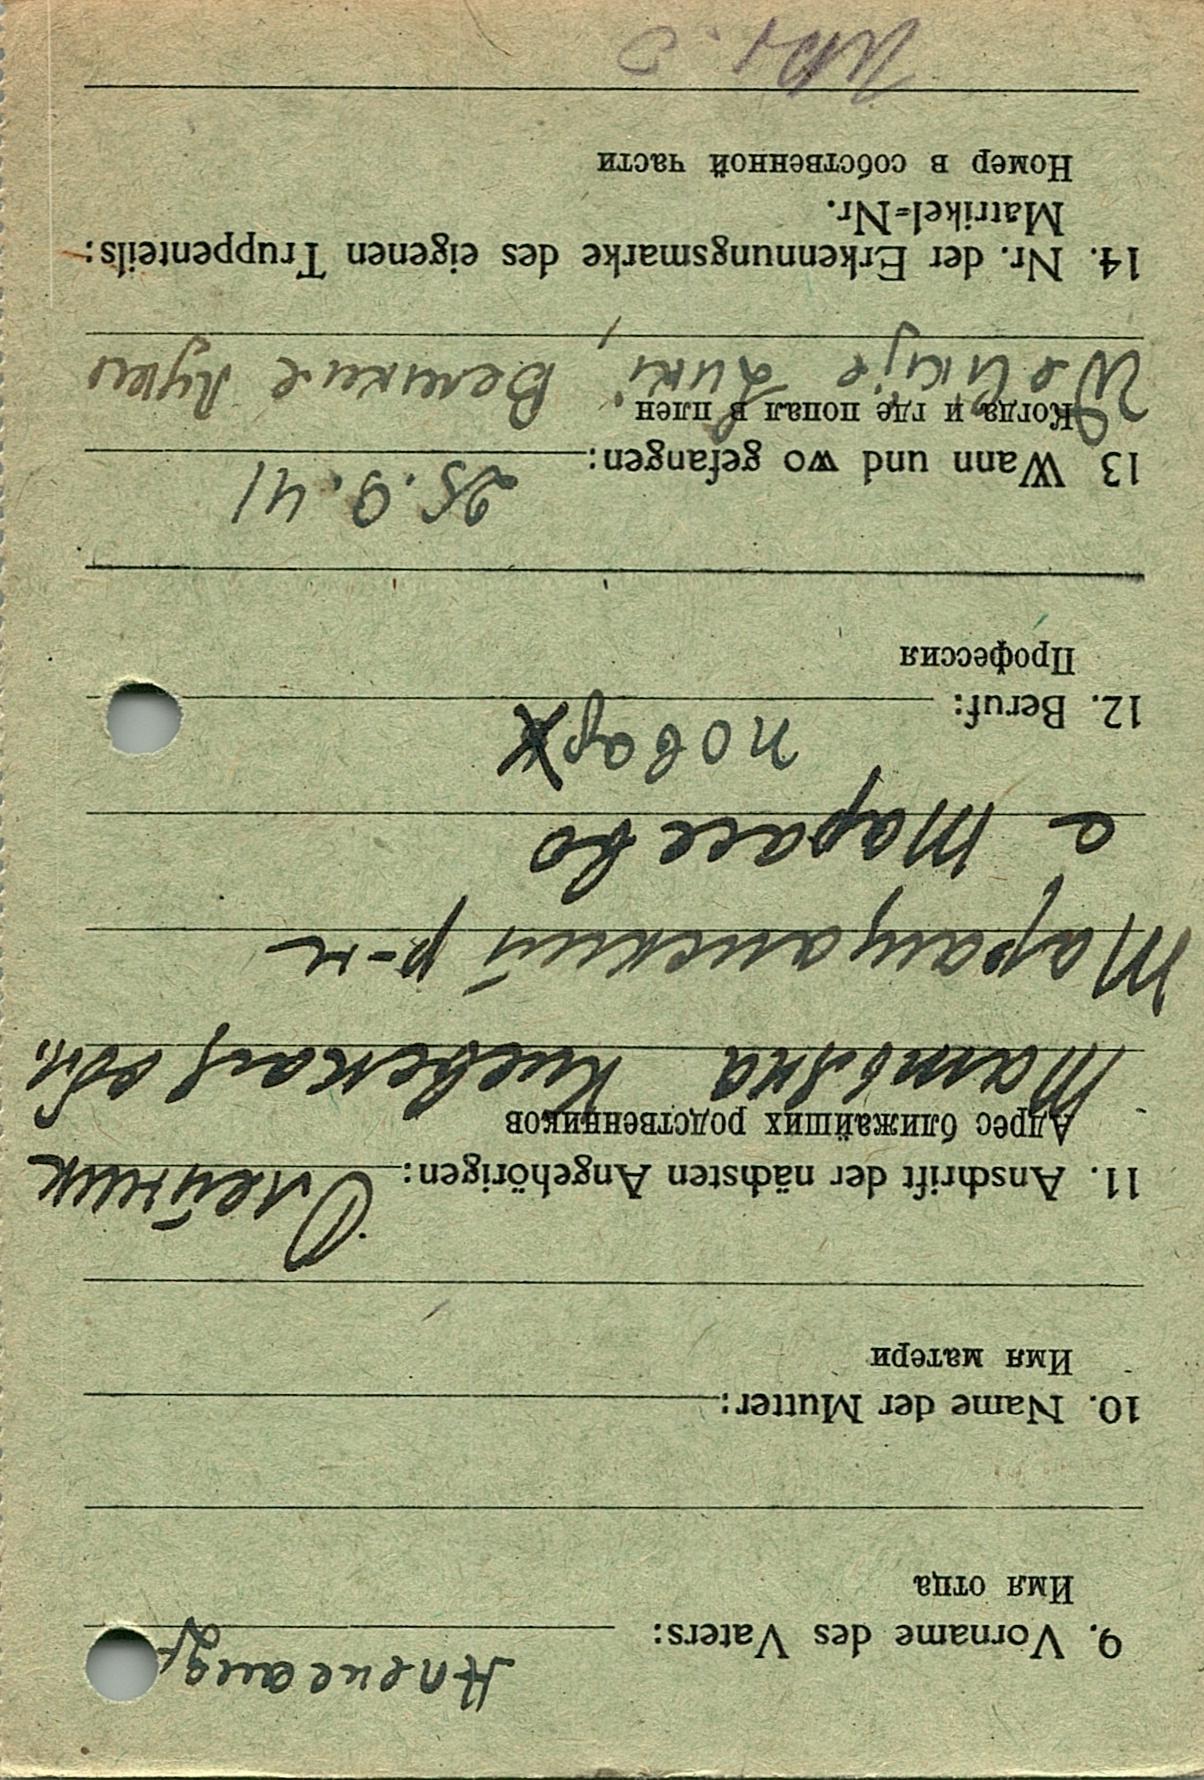 Александр
9. Vorname des Vaters:
Имя отца
10. Name der Mutter:
Имя матери
11. Anschrift der nächsten Angehörigen: Олейник
Адрес ближайших родственников
Татьяна Киевская обл.
Таращанский р-н
с Тарасевко
повар
12. Beruf:
Профессия
25.9.41
13 Wann und wo gefangen:
Когда и где попал в плен
Welikije Luki, Великие Луки
14. Nr. der Erkennungsmarke des eigenen Truppenteils:
Matrikel=Nr.
Номер в собственной части